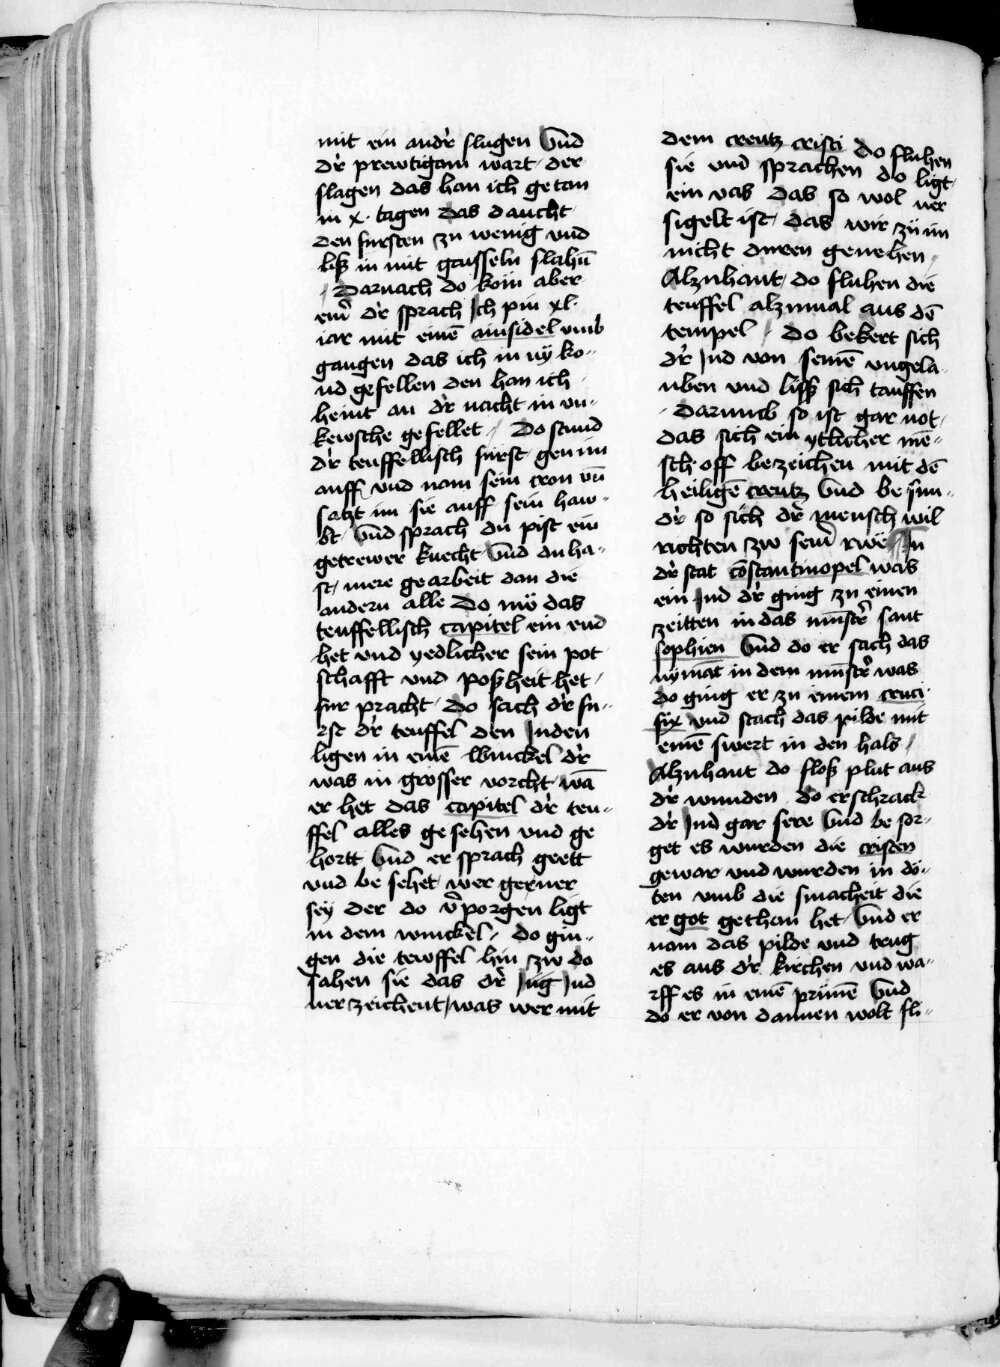 mit ein andr̉ slugen Vnd
dr̉ prewtigam wart der
slagen das han ich getan
in x. tagen das daucht
den fursten zu wenig vnd
liß in mit gaisseln slahn̄
Darnach do kom aber
ein̉ dr̉ sprach Ich pin xl.
iar mit einē ainsidel vmb
gangen das ich in nÿ ko-
nd gefellen den han ich
heint an dr̉ nacht in vn-
kewsche gefellet Do stund
dr̉ teuffellisch furst gen im
auff vnd nam sein cron vn̄
saczt im sie auff sein haw-
bt Vnd sprach du pist ein
getrewer knecht Vnd du ha-
st mere gearbeit dan die
andern alle Do nŵ das
teuffellisch capitel ein end
het vnd yedlicher sein pot
schafft vnd poßheit het
fur pracht Do sach dr̉ fu-
rst dr̉ teuffel den Juden
ligen in einē winckel dr̉
was in grosser vorcht wā
er het das capitel dr̉ teu-
ffel alles gesehen vnd ge
hortt Vnd er sprach geett
vnd besehet wer gener
sey der do v̉porgen ligt
in dem winckel Do gin-
gen die tewffel hin zw do
sahen sie das dr̉ Jūg Jud
verzeichent was wer mit
dem creutz cristi Do fluhen
sie vnd sprachen do ligt
ein vas das so wol ver
sigelt ist das wir zü im
nicht durren genehen
Alzuhant do fluhen die
teuffel alzumal aus dē
tempel Do bekert sich
dr̉ Jud von seinē vngela-
uben vnd liß sich tauffen
Darumb so ist gar not
das sich ein ytlicher mē-
sch off bezeichen mit dē
heiligē creutz Vnd besun-
dr̉ so sich dr̉ mensch wil
richten zw sein̉ rwe In
dr̉ stat cōstantinopel was
ein Jud dr̉ ging zu einen
zeitten in das mūstr̉ sant
sophien Vnd do er sach das
nymāt in dem mūstr̉ was
do ging er zu einem cruci-
fix vnd stach das pilde mit
einē swert in den hals
Alzuhant do floß plut aus
dr̉ wunden do erschrack
dr̉ Jud gar sere Vnd besor-
get es wurden die cristen
gewar vnd wurden in dö-
ten vmb die smacheit die
er got gethan het Vnd er
nam das pilde vnd trug
es aus dr̉ kirchen vnd wa-
rff es in einē prünē Vnd
do er von dannen wolt fli-